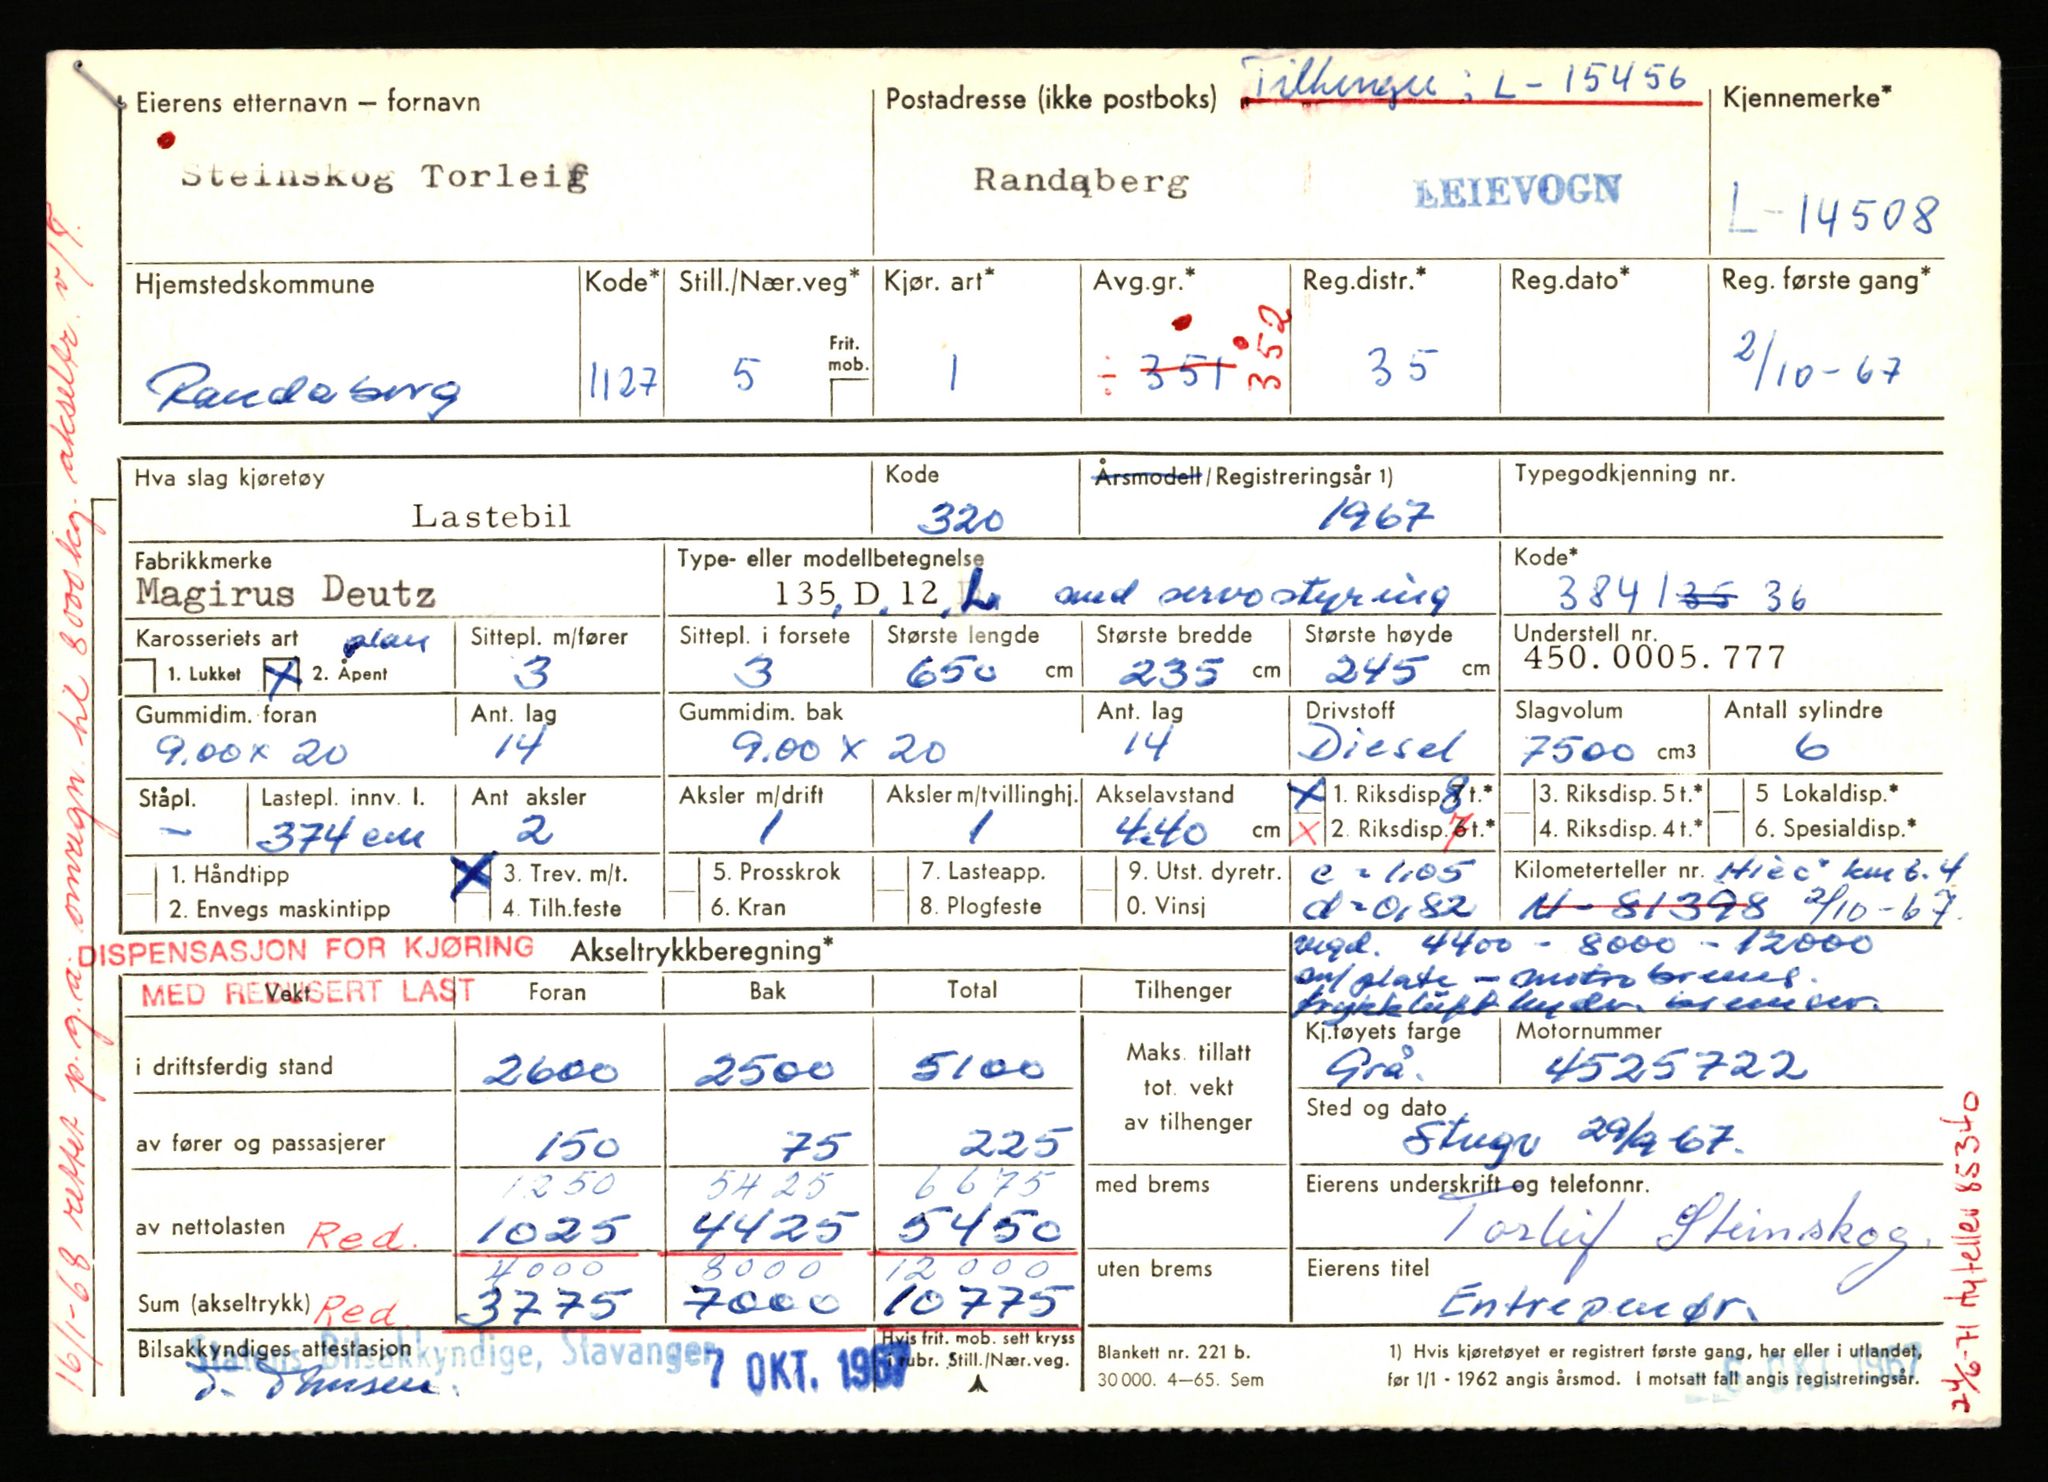 Tilhenger: L-15456
Eierens etternavn – fornavn
Postadresse (ikke postboks)
Kjennemerke*
Steinskog Torleif
Randaberg
LEIEVOGN
L-14508
Hjemstedskommune
Kode*
Still./Nær.veg*
Kjør. art*
Avg.gr.*
Reg.distr.*
Reg.dato*
Reg. første gang*
Randaberg
1127
5
Frit. mob.
1
÷ 351
352
35
2/10-67
Hva slag kjøretøy
Kode
Årsmodell/Registreringsår 1)
Typegodkjenning nr.
Lastebil
320
1967
Fabrikkmerke
Type- eller modellbetegnelse
Kode*
Magirus Deutz
135, D, 12, L. med servostyring
384/35 36
Karosseriets art
plan
Sittepl. m/fører
Sittepl. i forsete
Største lengde
Største bredde
Største høyde
Understell nr.
1. Lukket
X 2. Åpent
3
3
650 cm
235 cm
245 cm
450.0005.777
Gummidim. foran
Ant. lag
Gummidim. bak
Ant. lag
Drivstoff
Slagvolum
Antall sylindre
9.00 x 20
14
9.00 x 20
14
Diesel
7500 cm3
6
Ståpl.
Lastepl. innv. l.
Ant aksler
Aksler m/drift
Aksler m/tvillinghj.
Akselavstand
X 1. Riksdisp. 8 t.*
3. Riksdisp. 5 t.*
5 Lokaldisp.*
–
374 cm
2
1
1
4.40 cm
X 2. Riksdisp. 7 t.*
4. Riksdisp. 4 t.*
6. Spesialdisp.*
1. Håndtipp
X 3. Trev. m/t.
5. Prosskrok
7. Lasteapp.
9. Utst. dyretr.
c = 1,05
Kilometerteller nr. Hico km 6.4
2. Envegs maskintipp
4. Tilh.feste
6. Kran
8. Plogfeste
0. Vinsj
d = 0,82
N - 81398 2/10-67.
DISPENSASJON FOR KJØRING
MED REDUSERT LAST
Akseltrykkberegning*
4400 - 8000 - 12000
m/plate - motorbrems.
trykkluft hydr. bremser.
Vekt
Foran
Bak
Total
Tilhenger
Kj.tøyets farge
Motornummer
i driftsferdig stand
2600
2500
5100
Maks. tillatt
tot. vekt
av tilhenger
Grå.
4525722
Sted og dato
av fører og passasjerer
150
75
225
Stvgr 29/9 67.
1250
5425
6675
med brems
Eierens underskrift og telefonnr.
av nettolasten Red.
1025
4425
5450
Torleif Steinskog.
4000
8000
12000
uten brems
Eierens titel
Sum (akseltrykk) Red.
3775
7000
10775
Entreprenør.
Bilsakkyndiges attestasjon
Statens Bilsakkyndige, Stavanger
7 OKT. 1967
Hvis frit. mob. sett kryss
i rubr. Still./Nær.veg.
Blankett nr. 221 b.
30 000. 4—65. Sem
1) Hvis kjøretøyet er registrert første gang, her eller i utlandet,
før 1/1 - 1962 angis årsmod. I motsatt fall angis registreringsår.
6 OKT. 1967
16/1-68 rettet p.g.a. omregn. til 8000 kg. akseltr. v/T.
24/6-71 Nyteller 85340